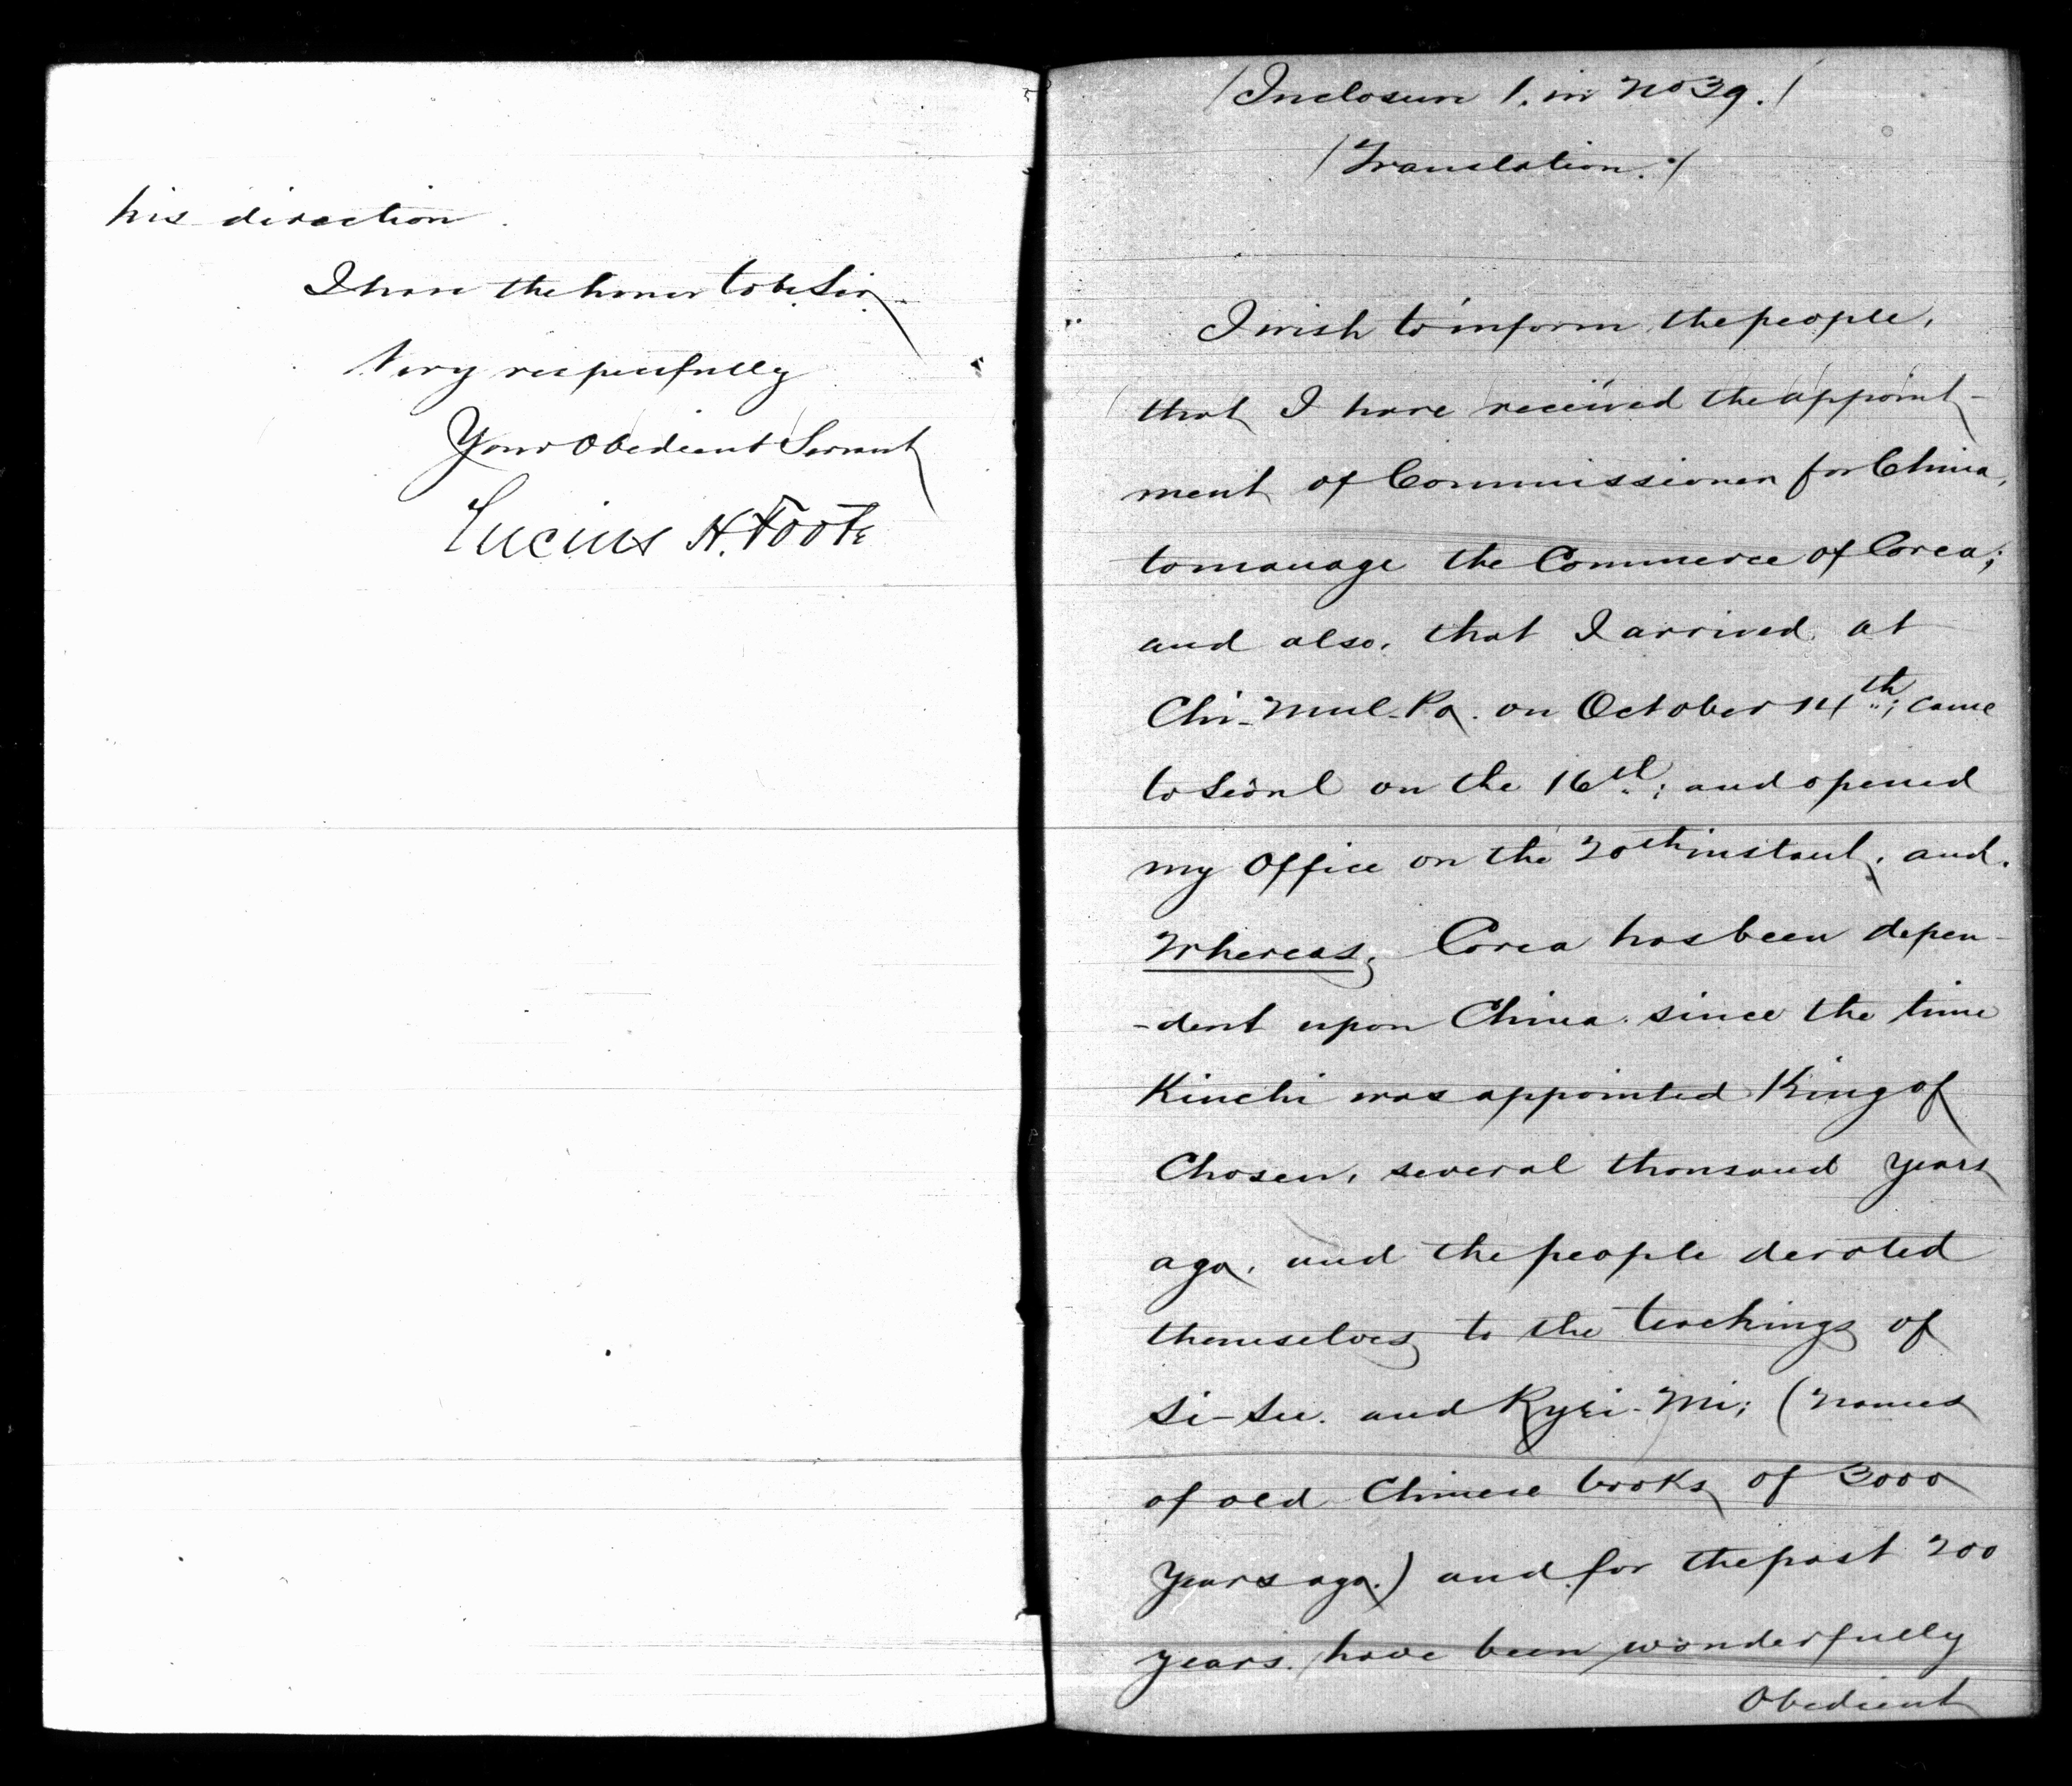 his direction.
I have the honor to be Sir
Very respectfully
Your Obedient Servant
Lucius H. Foote
/Inclosure 1. in No 39./
/Translation./
I wish to inform the people,
that I have received the appoint-
ment of Commissioner for China,
to manage the Commerce of Corea;
and also, that I arrived at
Chi-Mul-Po. on October 14th; came
to Seoul on the 16th; and opened
my Office on the 20th instant, and.
Whereas, Corea has been depen-
-dent upon China since the time
Kinchi was appointed King of
Chosen, several thousand years
ago, and the people devoted
themselves to the teachings of
Si-Su. and Ryei-Mi; (names
of old Chinese books of 3000
years ago.) and for the past 200
years. have been wonderfully
Obedient